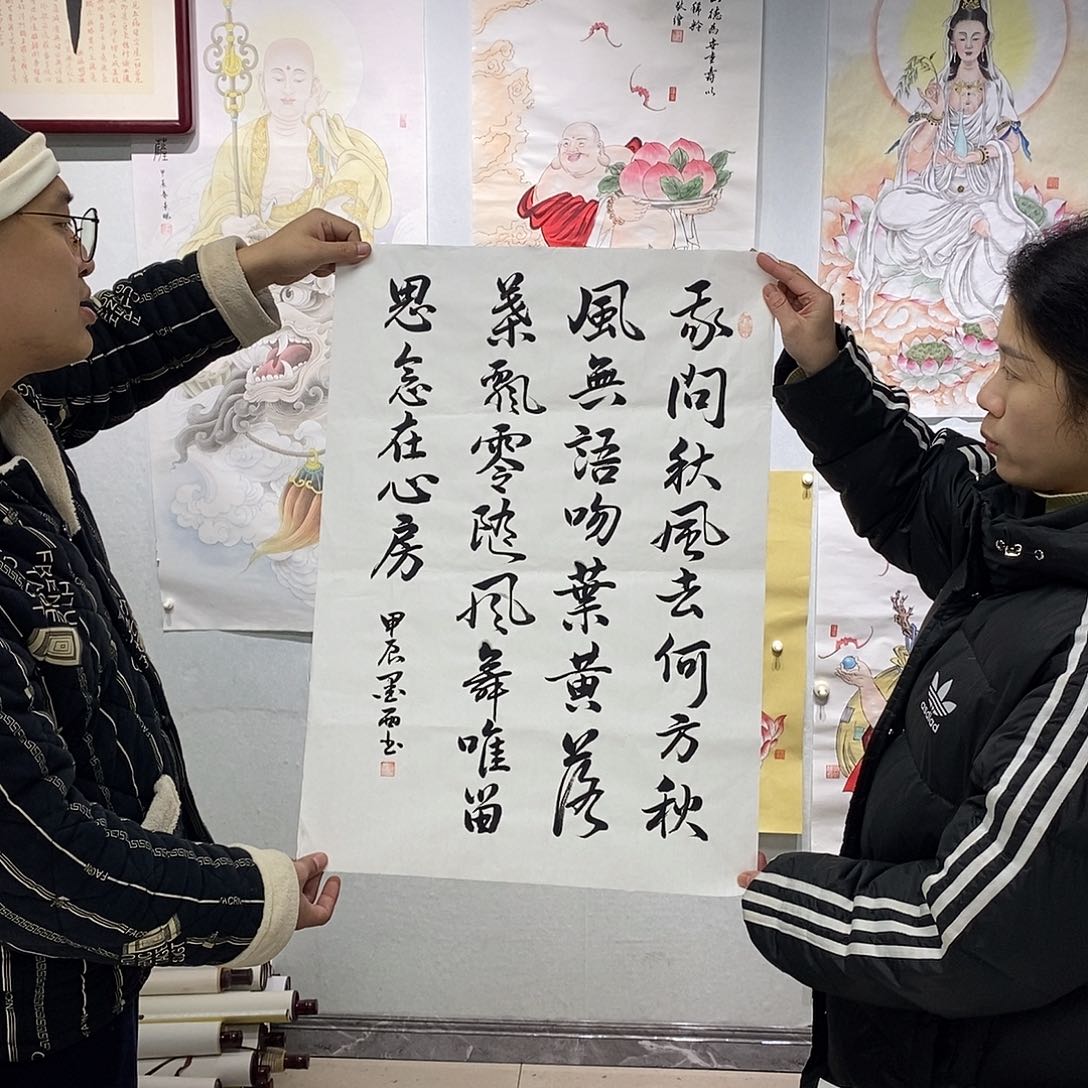 我問秋風去何方秋
風無語吻葉黃落
葉飄零随風舞唯留
思念在心房
甲辰墨雨书
adidas